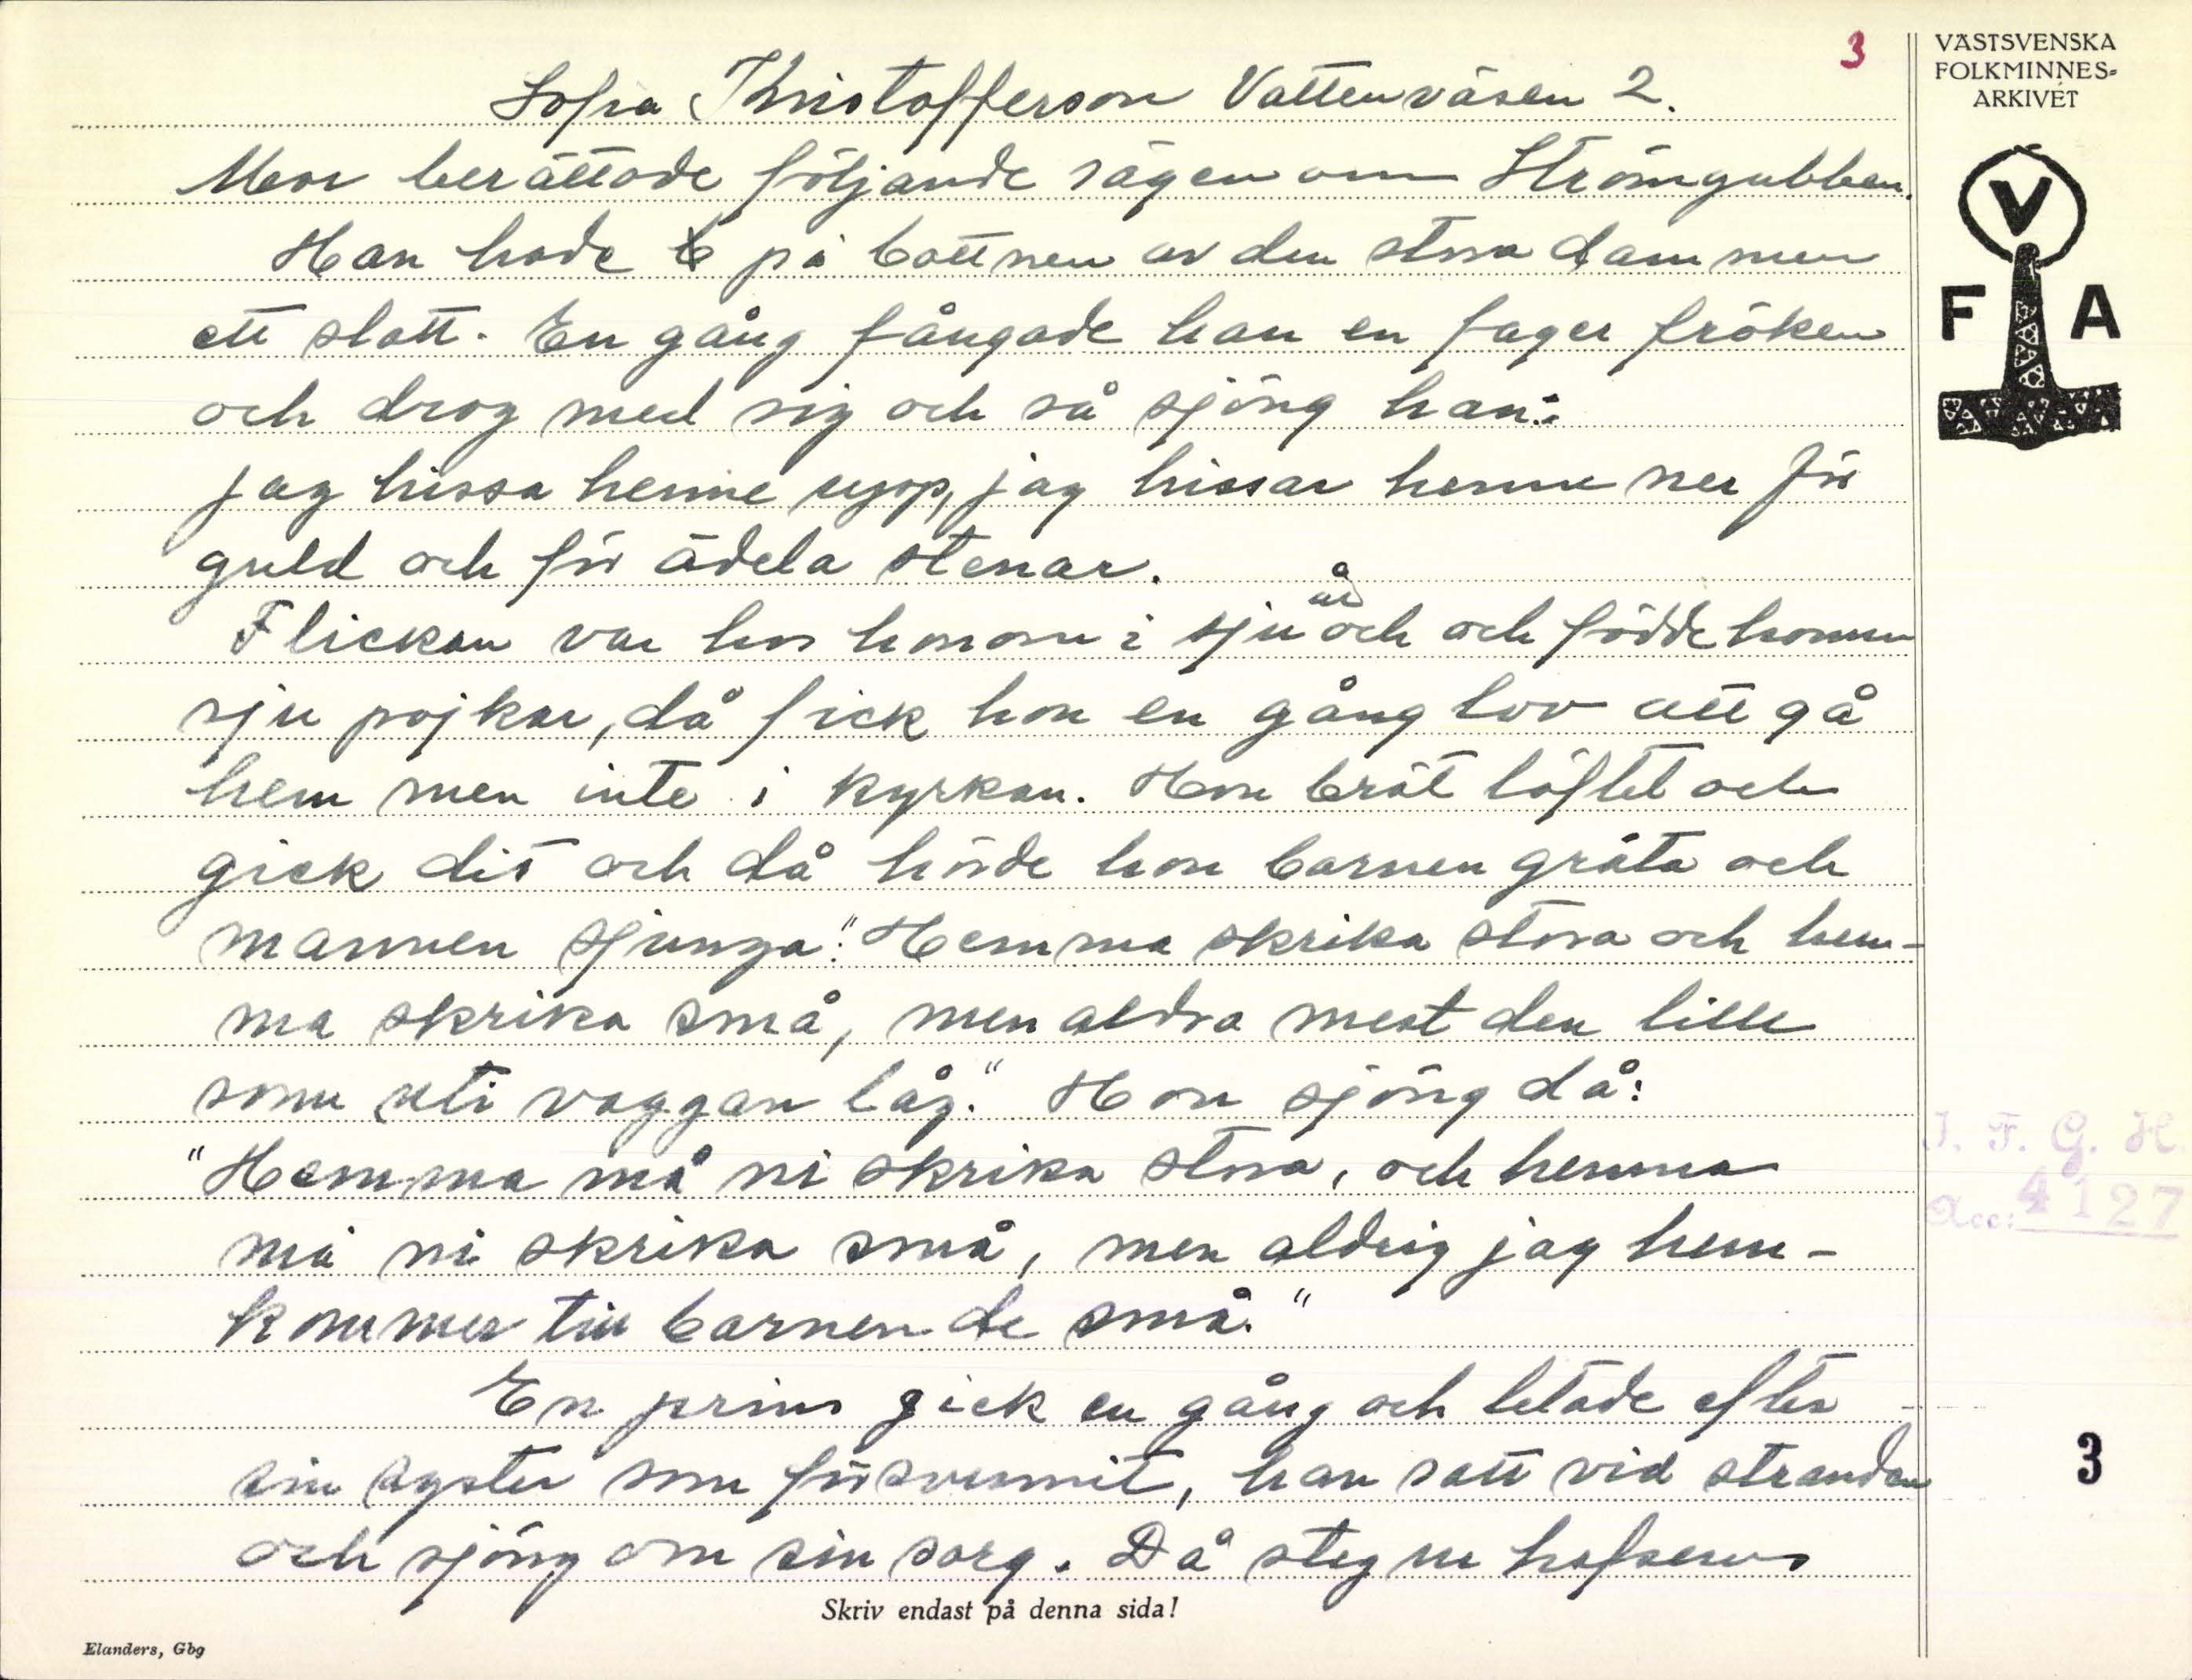 3
VÄSTSVENSKA
FOLKMINNES-
ARKIVET
V
F A
Sofia Kristofferson Vattenväsen 2.
Mor berättade följande sägen om Strömgubben.
Han hade på bottnen av den stora dammen
ett slott. En gång fångade han en fager fröken
och drog med sig och så sjöng han:
jag hissa henne upp, jag hissar henne ner för
guld och för ädela stenar.
Flickan var hos honom i sju år och och födde honom
sju pojkar, då fick hon en gång lov att gå
hem men inte i kyrkan. Hon bröt löftet och
gick dit och då hörde hon barnen gråta och
mannen sjunga: "Hemma skrika stora och hem-
ma skrika små, men aldra mest den lille
som uti vaggan låg." Hon sjöng då:
"Hemma må ni skrika stora, och hemma
må ni skrika små, men aldrig jag hem-
kommer till barnen de små."
En prins gick en gång och letade efter
sin syster som försvunnit, han satt vid stranden
och sjöng om sin sorg. Då steg ur hafsens
J. F. G. H.
Acc: 4127
3
Skriv endast på denna sida!
Elanders, Gbg